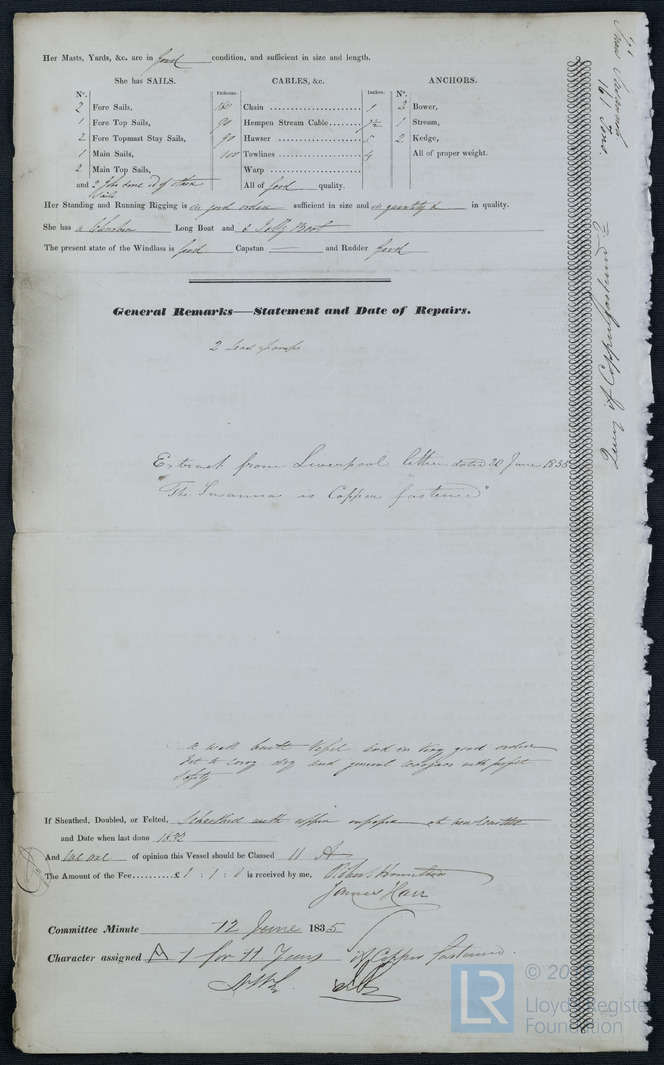 Her Masts, Yards, &c. are in good condition, and sufficient in size and length.
She has SAILS.
CABLES, &c.
ANCHORS.
No.
Fathoms.
Inches.
No.
2 Fore Sails,
1 Fore Top Sails,
2 Fore Topmast Stay Sails,
1 Main Sails,
2 Main Top Sails,
and 2 Jibs some of other
Sails
Chain 1
90 Hempen Stream Cable 7½
90 Hawser 5
100 Towlines 4
Warp
All of good quality.
2 Bower,
1 Stream,
2 Kedge,
All of proper weight.
Her Standing and Running Rigging is in good order sufficient in size and in quantity & in quality.
She has a Long Boat and a Jolly Boat
The present state of the Windlass is good Capstan — and Rudder good
General Remarks—Statement and Date of Repairs.
2 Lead Pumps
Extract from Liverpool letter dated 20 June 1835
"The Susanna is Copper fastened"
a well built Vessel and in very good order
fit to carry dry and general cargoes with perfect
safety
If Sheathed, Doubled, or Felted, Sheathed with copper at Newcastle
and Date when last done 1832
And we are of opinion this Vessel should be Classed 11 A
The Amount of the Fee £1 : 1 : 0 is received by me,
James Karr
Committee Minute 12 June 1835
Character assigned A 1 for 11 Years
If Copper fastened
161 Tons.
Query if Copper fastened
LR
Lloyd's Register
Foundation